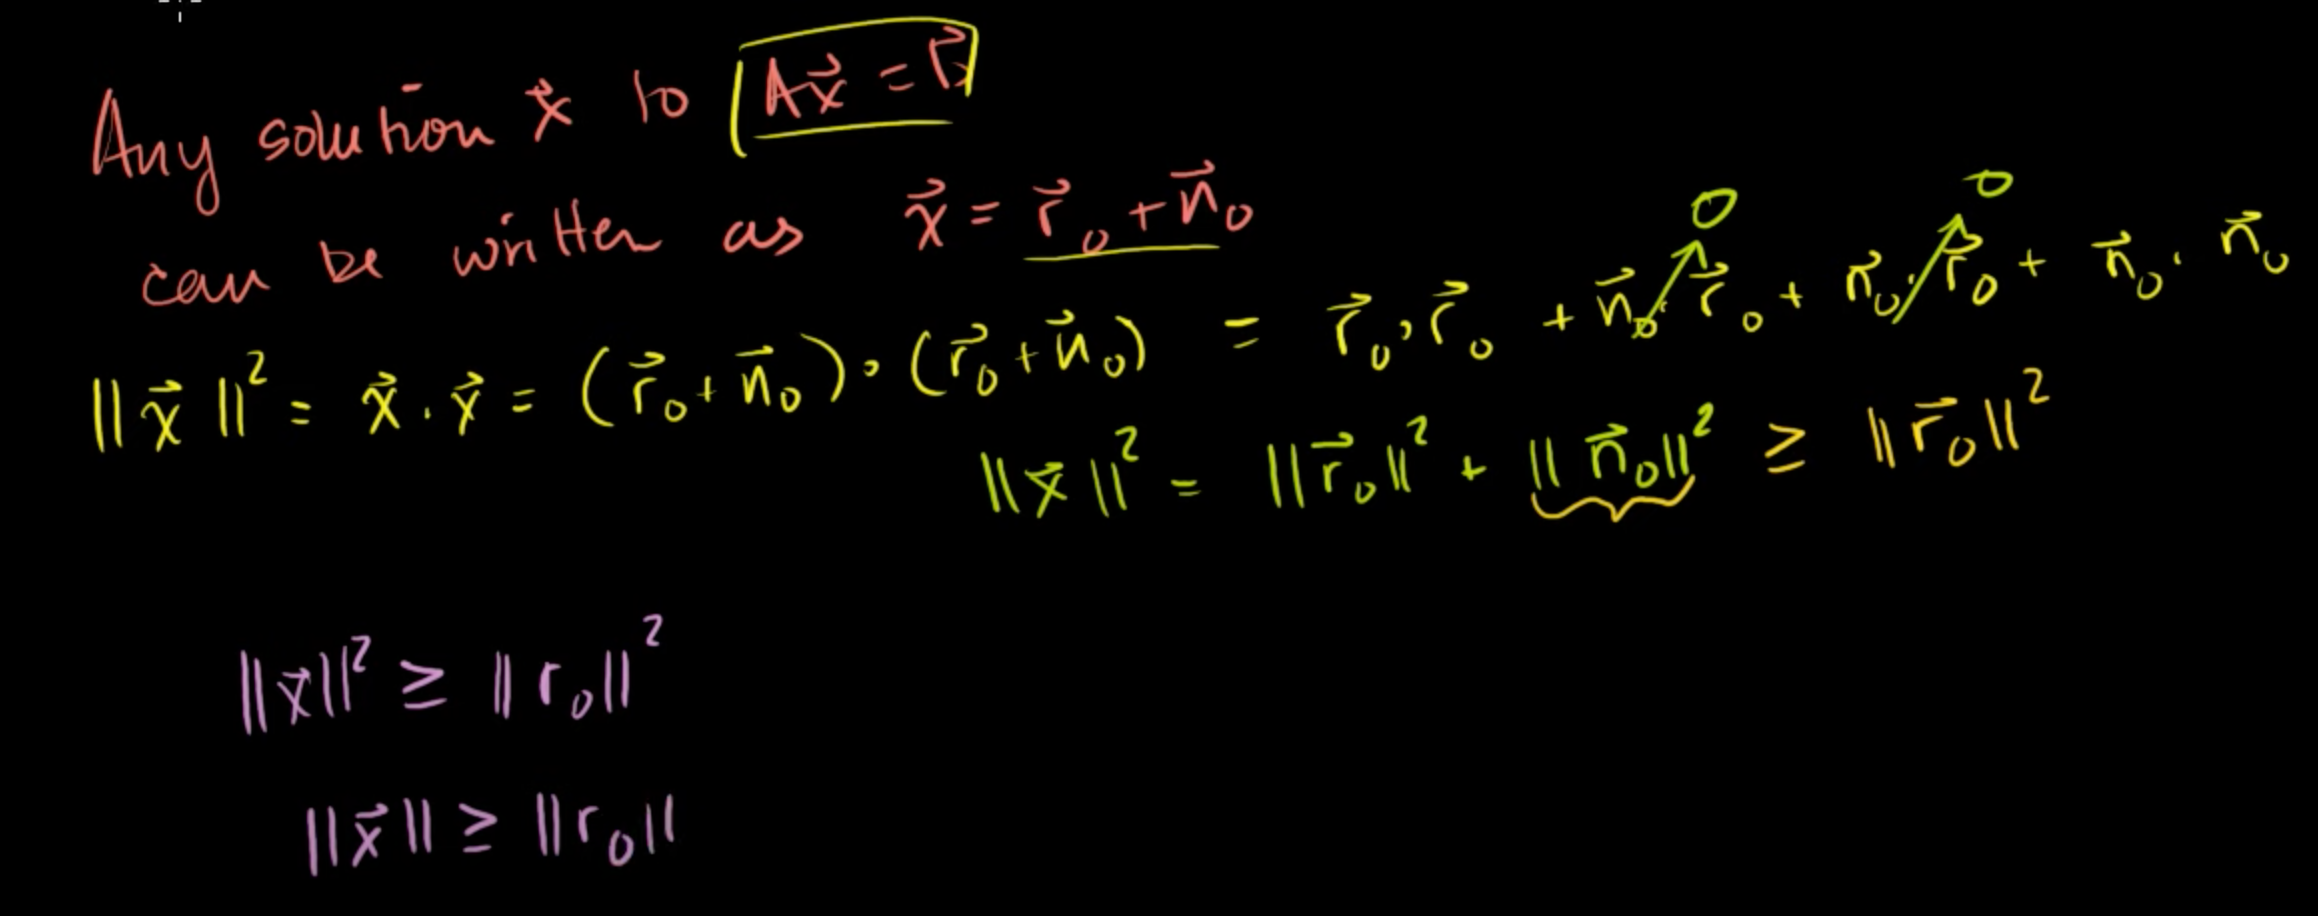 Any solution x⃗ to Ax⃗ = b⃗
can be written as x⃗ = r⃗₀ + n⃗₀
||x⃗||² = x⃗ · x⃗ = (r⃗₀ + n⃗₀) · (r⃗₀ + n⃗₀) = r⃗₀ · r⃗₀ + n⃗₀ · r⃗₀ + n⃗₀ · r⃗₀ + n⃗₀ · n⃗₀
0 0
||x⃗||² = ||r⃗₀||² + ||n⃗₀||² ≥ ||r⃗₀||²
||x⃗||² ≥ ||r₀||²
||x⃗|| ≥ ||r₀||